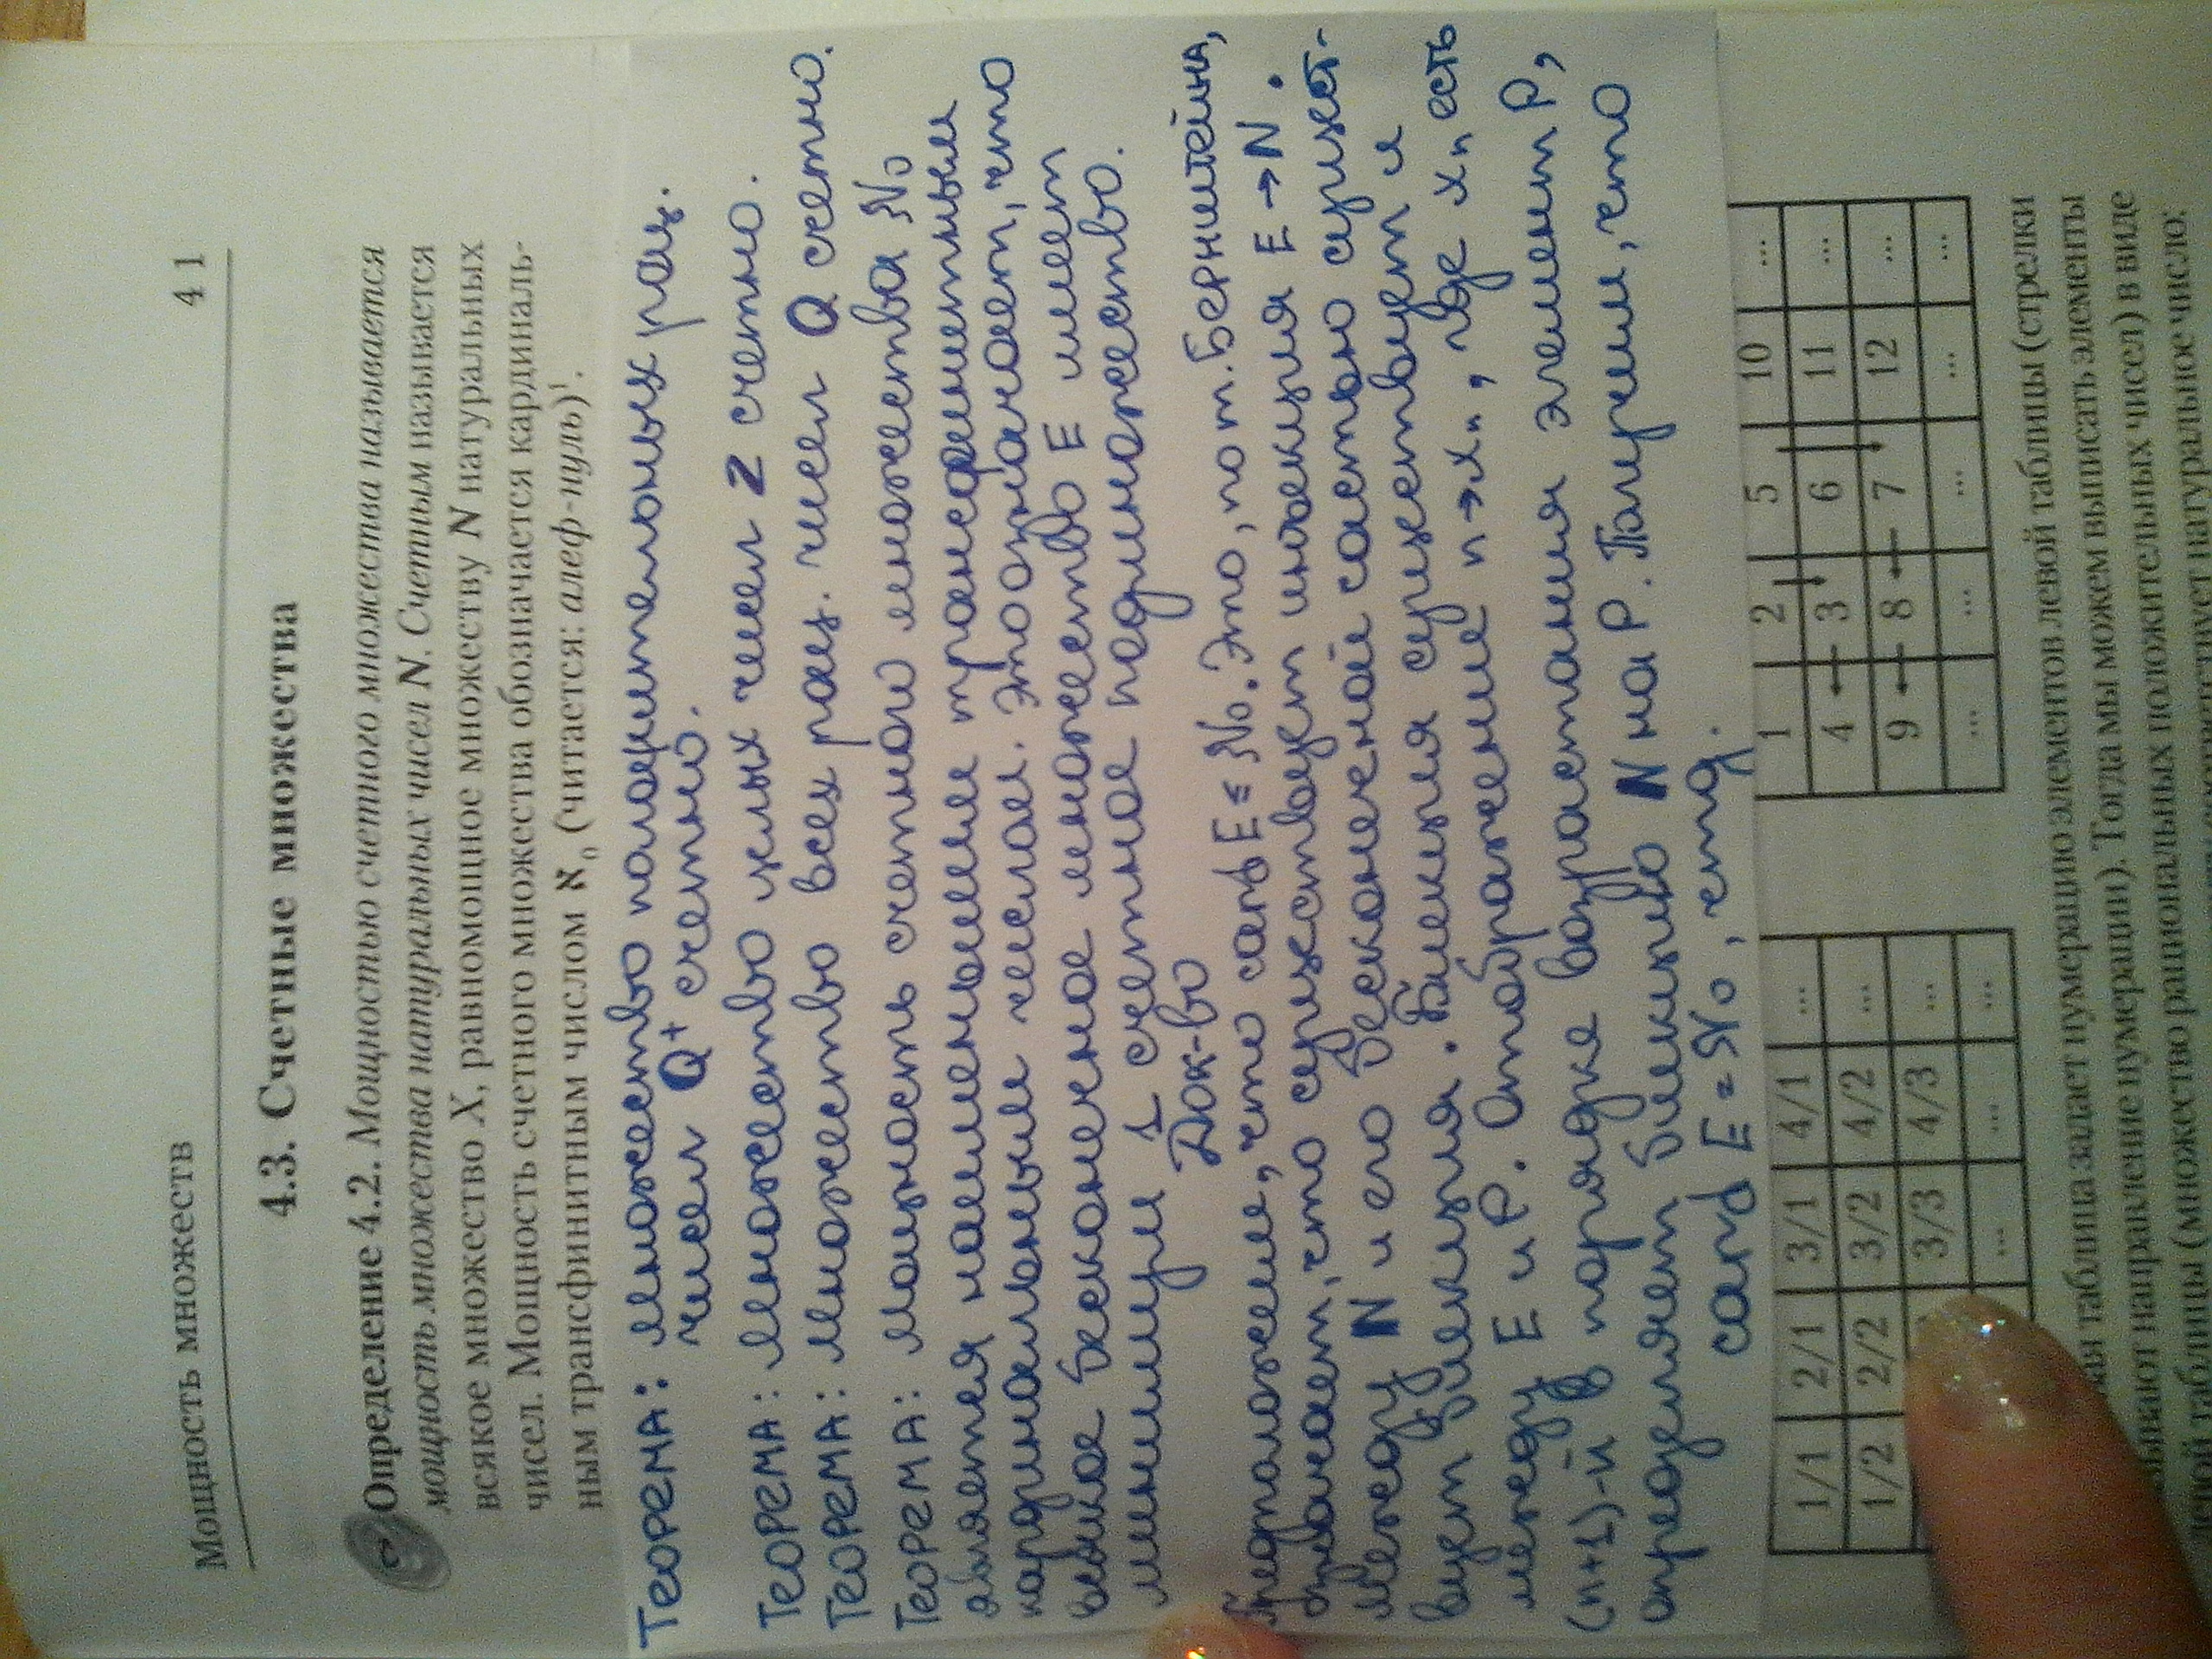 Мощность множеств 41
4.3. Счетные множества
Определение 4.2. Мощностью счетного множества называется
мощность множества натуральных чисел N. Счетным называется
всякое множество X, равномощное множеству N натуральных
чисел. Мощность счетного множества обозначается кардиналь-
ным трансфинитным числом ℵ₀ (читается: алеф-нуль)¹.
ТЕОРЕМА: Множество положительных рац.
чисел Q⁺ счетно.
ТЕОРЕМА: Множество целых чисел Z счетно.
ТЕОРЕМА: Множество всех рац. чисел Q счетно.
ТЕОРЕМА: Мощность счетного множества ℵ₀
является наименьшим трансфинитным
кардинальным числом. Это означает, что
всякое бесконечное множество E имеет
минимум 1 счетное подмножество.
Док-во
Предположим, что card E ≤ ℵ₀. Это, по т. Бернштейна,
означает, что существует инъекция E → N.
Между N и его бесконечной частью сущест-
вует биекция. Биекция существует и
между E и P. Отображение n→xₙ, где xₙ есть
(n+1)-й в порядке возрастания элемент P,
определяет биекцию N на P. Получим, что
card E = ℵ₀, чтд.
1/1 2/1 3/1 4/1 ...
1/2 2/2 3/2 4/2 ...
3/3 4/3 ...
... ... ...
1 2 5 10 ...
4 3 6 11 ...
9 8 7 12 ...
... ... ... ... ...
таблица задает нумерацию элементов левой таблицы (стрелки
направление нумерации). Тогда мы можем выписать элементы
левой таблицы (множество рациональных положительных чисел) в виде
соответствует натуральное число: